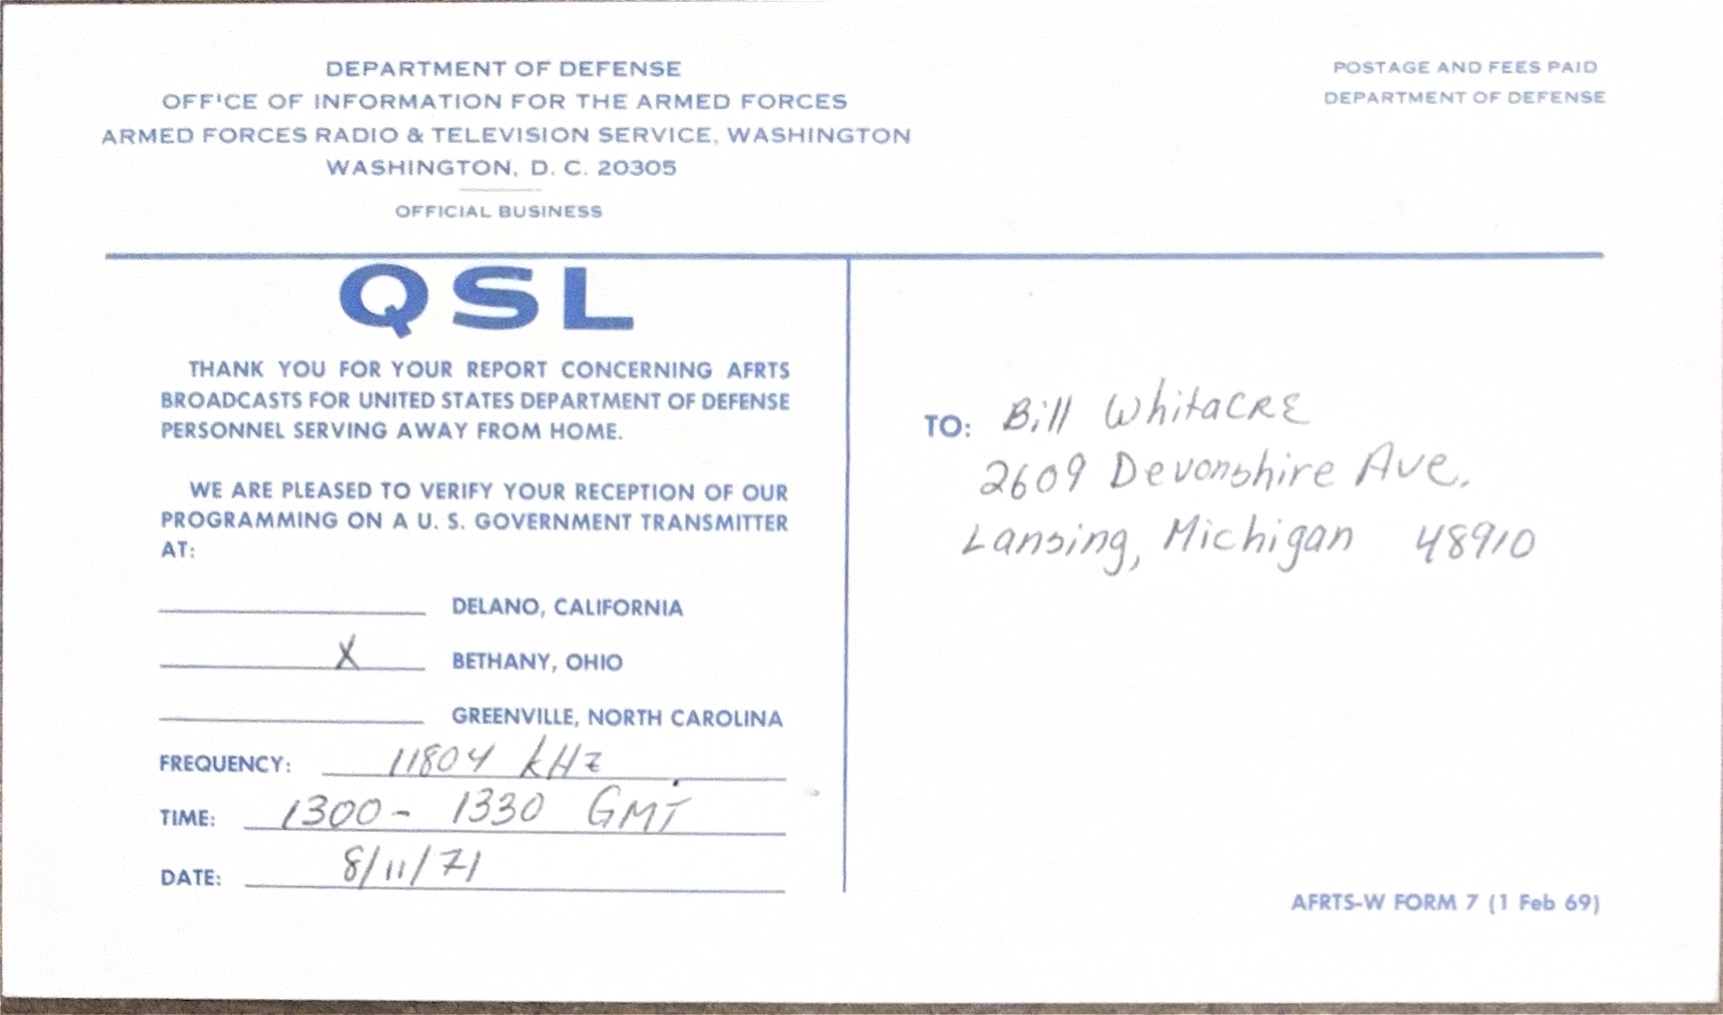 DEPARTMENT OF DEFENSE
OFF'CE OF INFORMATION FOR THE ARMED FORCES
ARMED FORCES RADIO & TELEVISION SERVICE, WASHINGTON
WASHINGTON, D. C. 20305
OFFICIAL BUSINESS
POSTAGE AND FEES PAID
DEPARTMENT OF DEFENSE
QSL
THANK YOU FOR YOUR REPORT CONCERNING AFRTS
BROADCASTS FOR UNITED STATES DEPARTMENT OF DEFENSE
PERSONNEL SERVING AWAY FROM HOME.
WE ARE PLEASED TO VERIFY YOUR RECEPTION OF OUR
PROGRAMMING ON A U. S. GOVERNMENT TRANSMITTER
AT:
DELANO, CALIFORNIA
X BETHANY, OHIO
GREENVILLE, NORTH CAROLINA
FREQUENCY: 11804 kHz
TIME: 1300- 1330 GMT
DATE: 8/11/71
TO: Bill Whitacre
2609 Devonshire Ave.
Lansing, Michigan 48910
AFRTS-W FORM 7 (1 Feb 69)